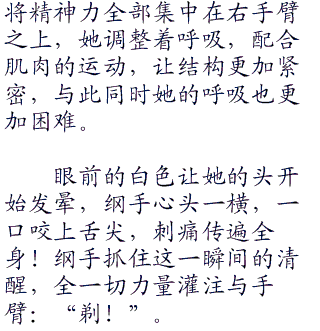 将精神力全部集中在右手臂
之上，她调整着呼吸，配合
肌肉的运动，让结构更加紧
密，与此同时她的呼吸也更
加困难。
眼前的白色让她的头开
始发晕，纲手心头一横，一
口咬上舌尖，刺痛传遍全
身！纲手抓住这一瞬间的清
醒，全一切力量灌注与手
臂：“剃！”。